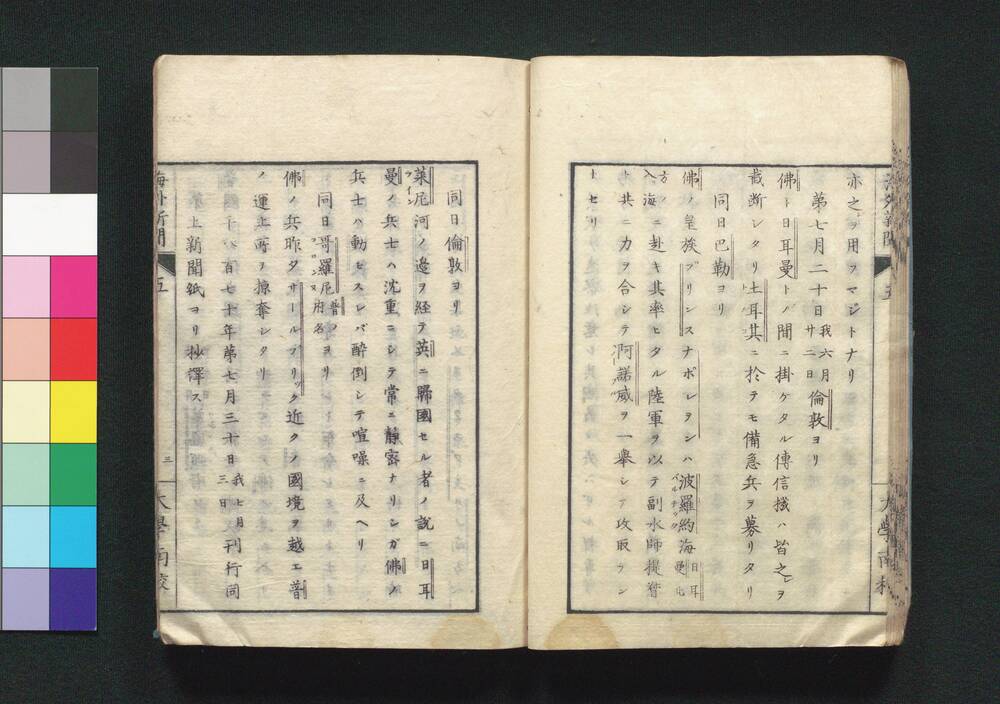 亦之ヲ用ヲマジトナリ
第七月二十日我六月廿二日倫敦ヨリ
佛ト日耳曼トノ間ニ掛ケタル傳信機ハ皆之ヲ
截断シタリ土耳其ニ於テモ備急兵ヲ募リタリ
同日巴勒ヨリ
佛ノ皇族プリンスナポレヲンハ波羅約海日耳曼北
方ノ入海ニ赴キ其率ヒタル陸軍ヲ以テ副水師提督
ト共ニ力ヲ合シテ測諾威ヲ一擧シテ攻取ラン
トセリ
海外新聞
五
大學南校
同日倫敦ヨリ
莱尼河ノ邊ヲ経テ英ニ歸國セル者ノ説ニ日耳
曼ノ兵士ハ沈重ニシテ常ニ静密ナリシガ佛ノ
兵士ハ動モスレバ酔倒シテ喧噪ニ及ヘリ
同日哥羅尼普ノ府名ヨリ
佛ノ兵昨タサールブリック近クノ國境ヲ越エ普
ノ運上所ヲ掠奪シタリ
千八百七十年第七月三十日我七月三日刊行同
上新聞紙ヨリ抄譯ス
海外新聞
五
三
大學南校